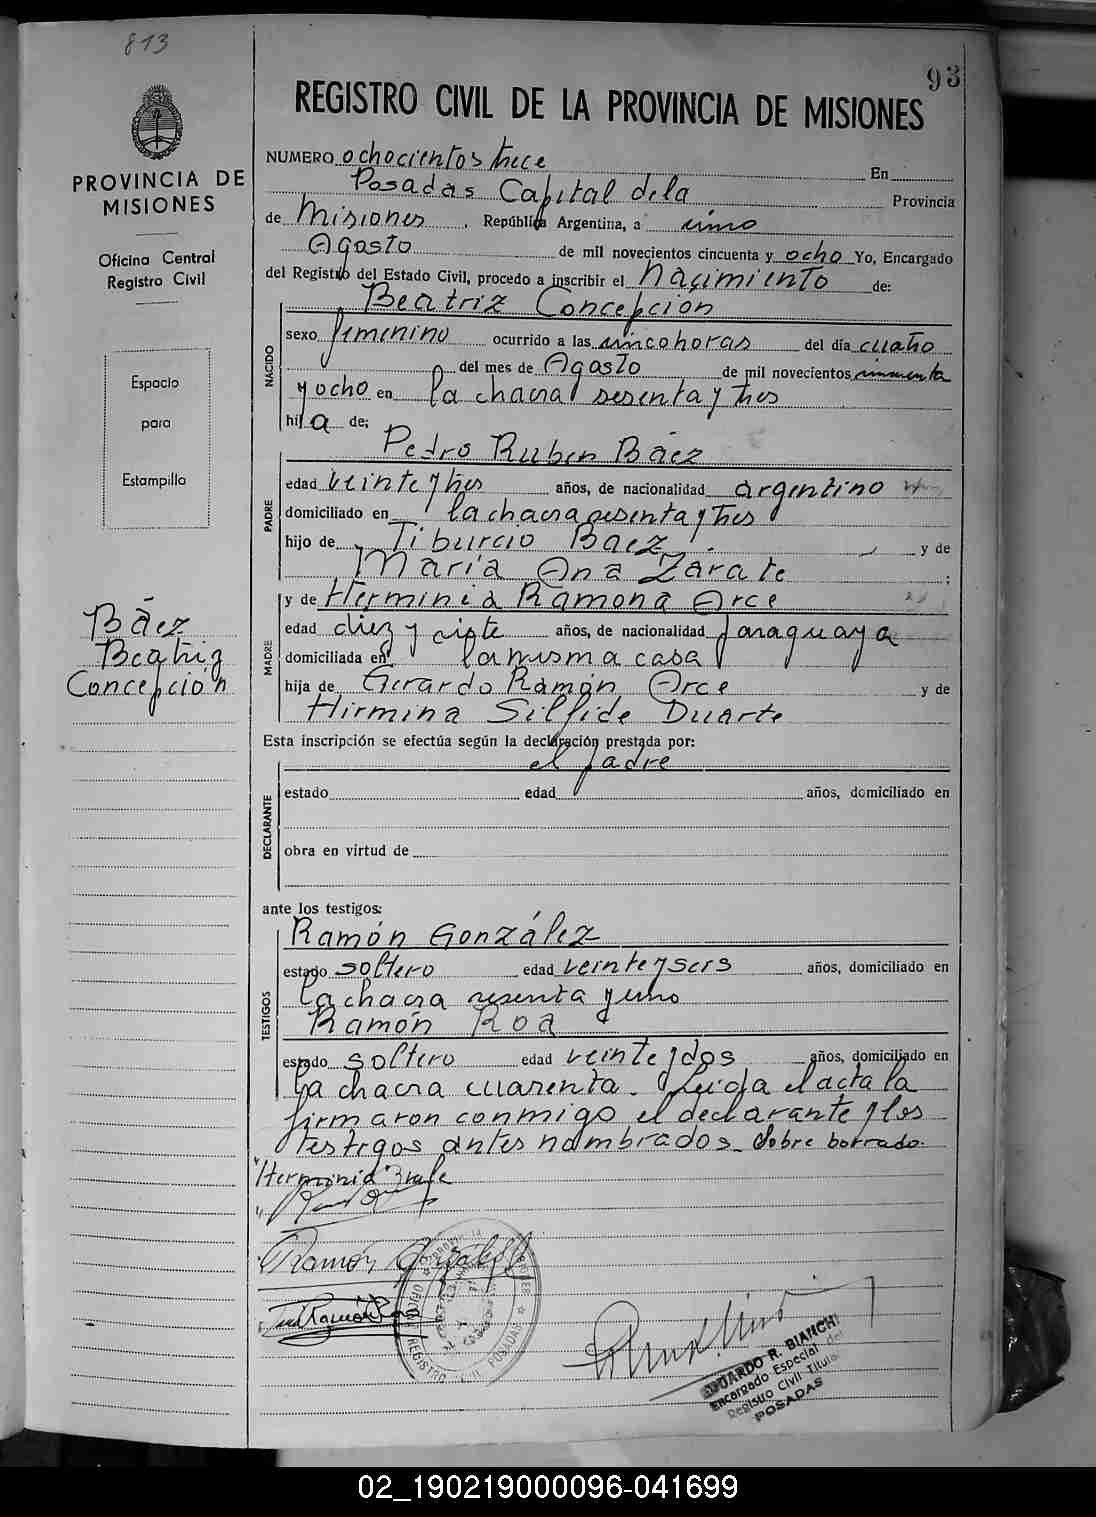 813
93
REGISTRO CIVIL DE LA PROVINCIA DE MISIONES
PROVINCIA DE
MISIONES
Oficina Central
Registro Civil
Espacio
para
Estampilla
Báez
Beatriz
Concepción
NUMERO ochocientos trece En
Posadas Capital de la Provincia
de Misiones, República Argentina, a cinco
Agosto de mil novecientos cincuenta y ocho Yo, Encargado
del Registro del Estado Civil, procedo a inscribir el Nacimiento de:
NACIDO
Beatriz Concepción
sexo femenino ocurrido a las cinco horas del día cuatro
del mes de Agosto de mil novecientos cincuenta
y ocho en la chacra sesenta y tres
hija de:
Pedro Ruben Báez
PADRE
edad veinte y tres años, de nacionalidad argentino
domiciliado en la chacra sesenta y tres
hijo de Tiburcio Báez y de
María Ana Zárate ;
y de Herminia Ramona Arce
MADRE
edad diez y siete años, de nacionalidad paraguaya
domiciliada en la misma casa
hija de Gerardo Ramón Arce y de
Hirmina Silfide Duarte
Esta inscripción se efectúa según la declaración prestada por:
el padre
DECLARANTE
estado edad años, domiciliado en
obra en virtud de
ante los testigos:
TESTIGOS
Ramón González
estado soltero edad veinte y seis años, domiciliado en
la chacra sesenta y uno
Ramón Roa
estado soltero edad veinte y dos años, domiciliado en
la chacra cuarenta. Leida el acta la
firmaron conmigo el declarante y los
testigos antes nombrados. Sobre borrado.
"Herminia"
Ramón González
Ramón Roa
REGISTRO POSADAS
EDUARDO R. BIANCHI
Encargado Especial del
Registro Civil Titular
POSADAS
02_190219000096-041699